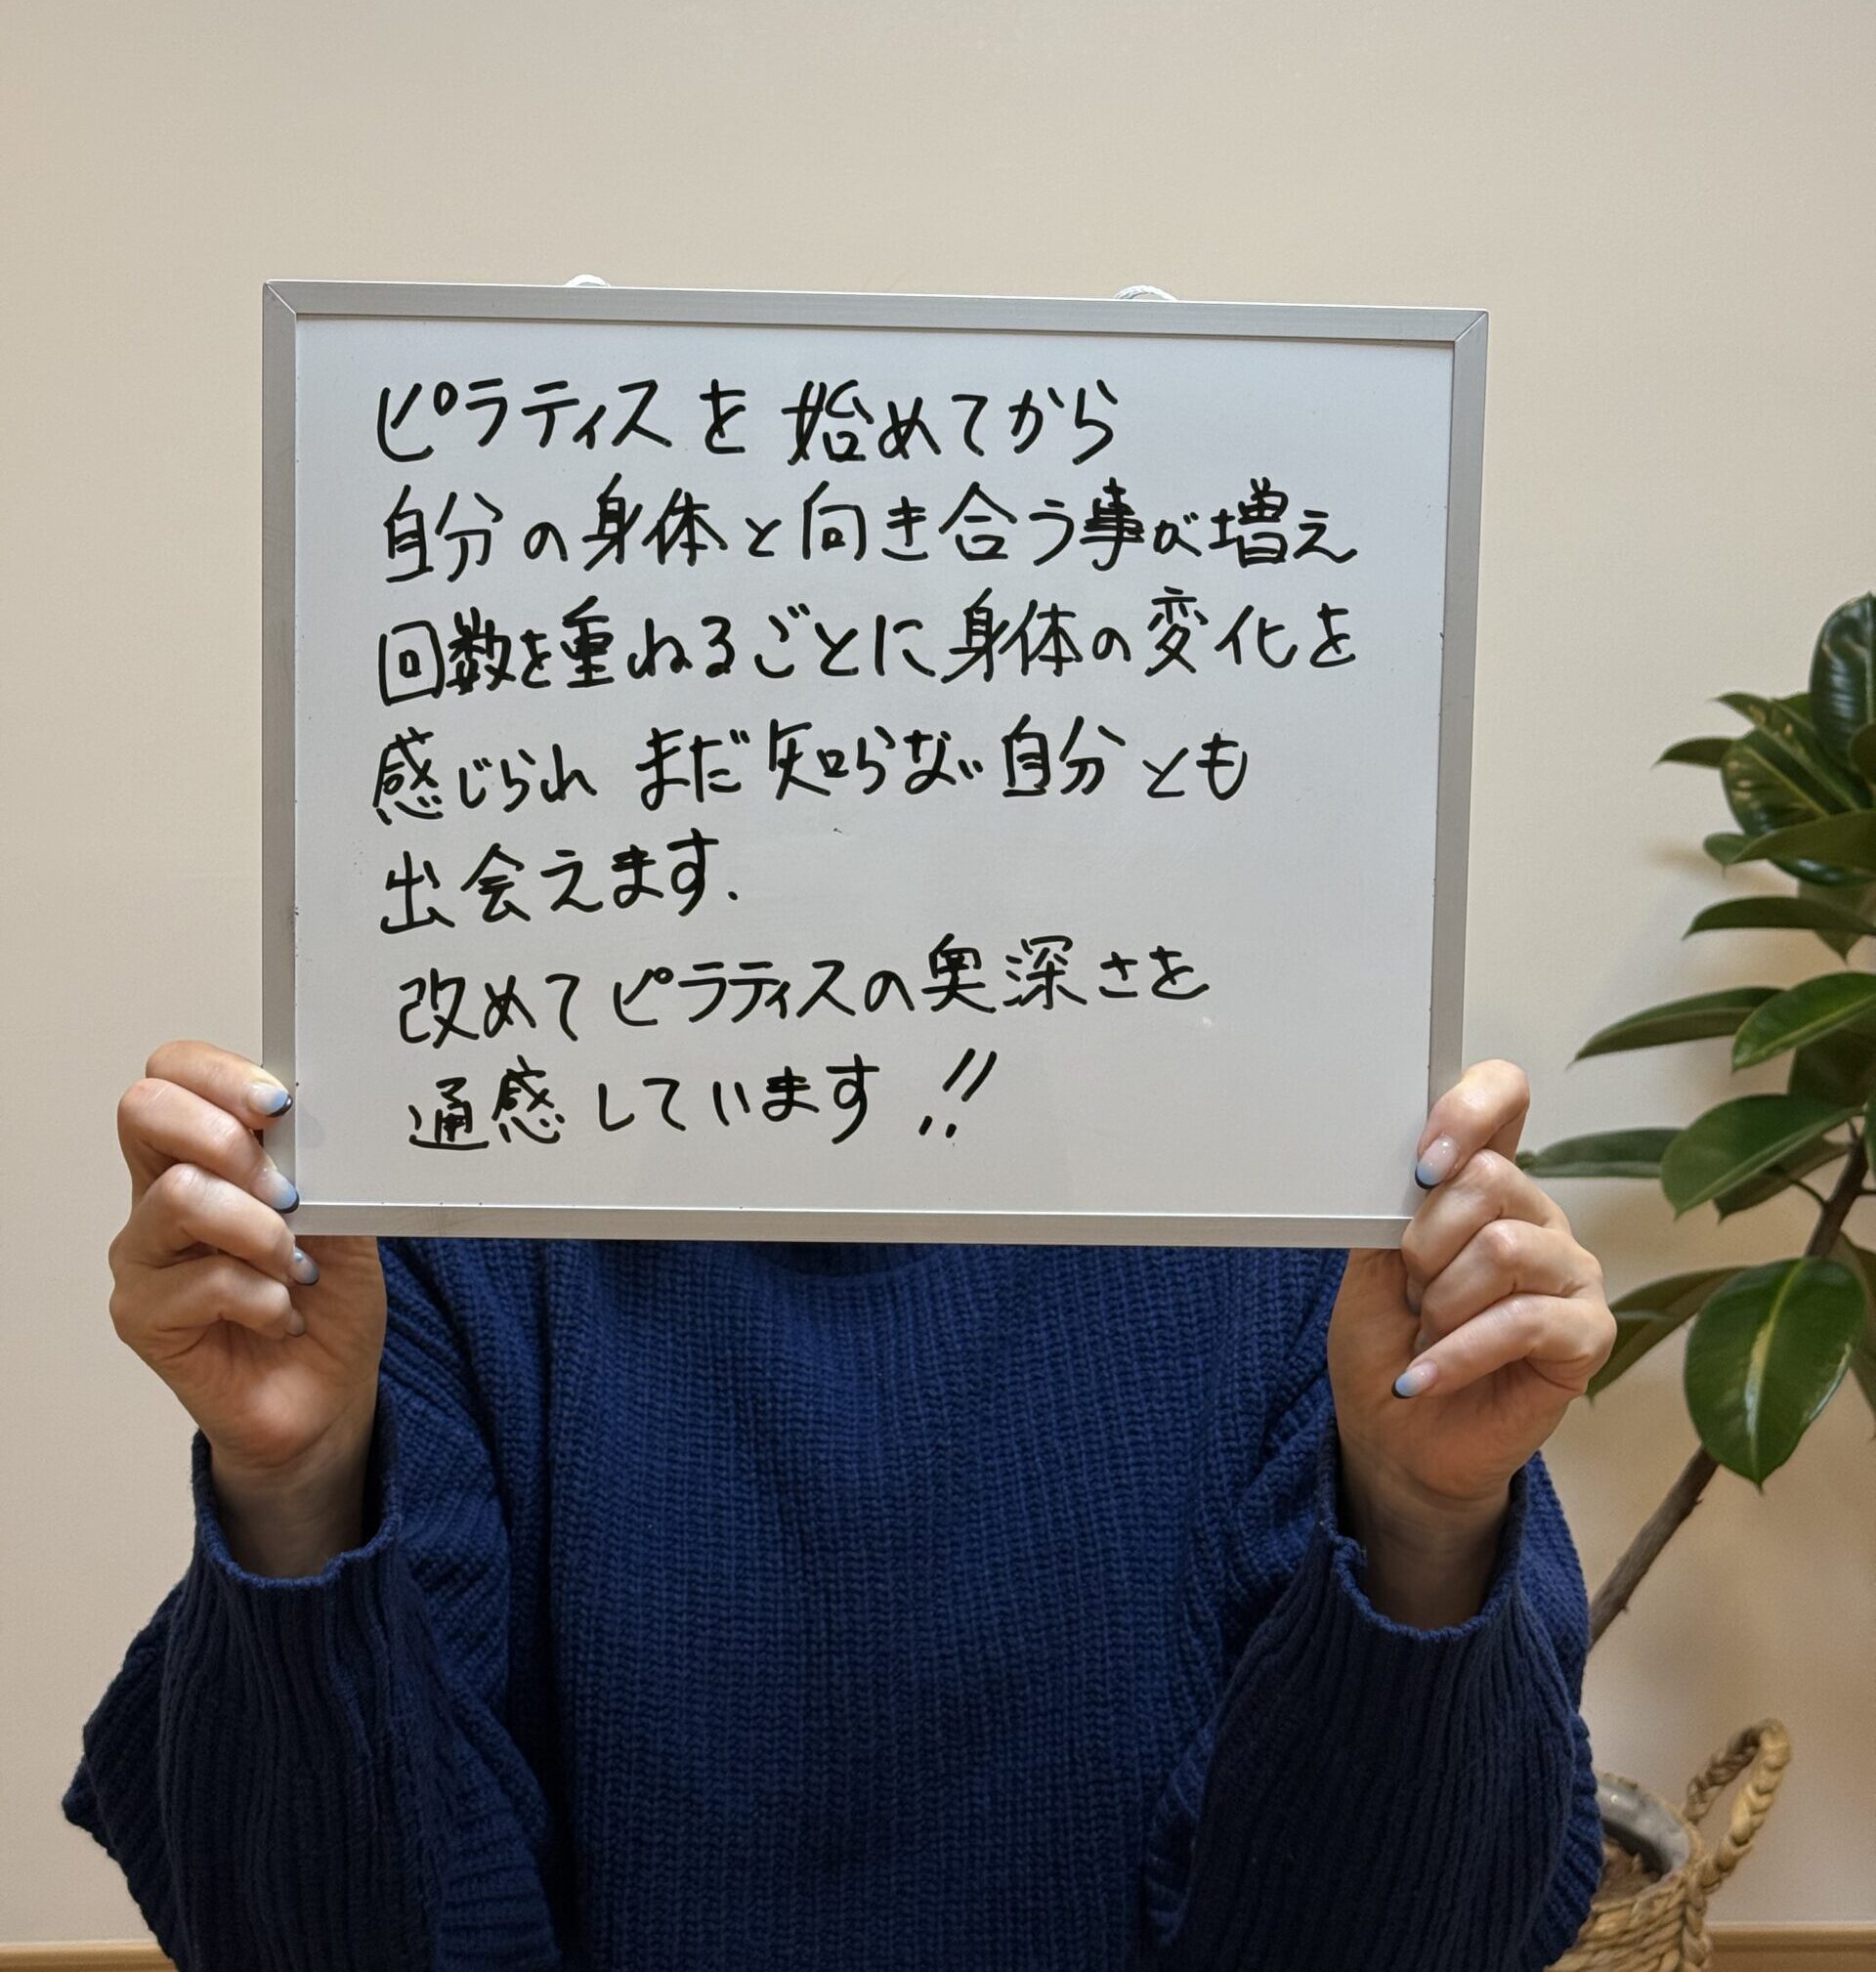 ピラティスを始めてから
自分の身体と向き合う事が増え
回数を重ねるごとに身体の変化を
感じられ まだ知らない自分とも
出会えます.
改めてピラティスの奥深さを
通感しています!!